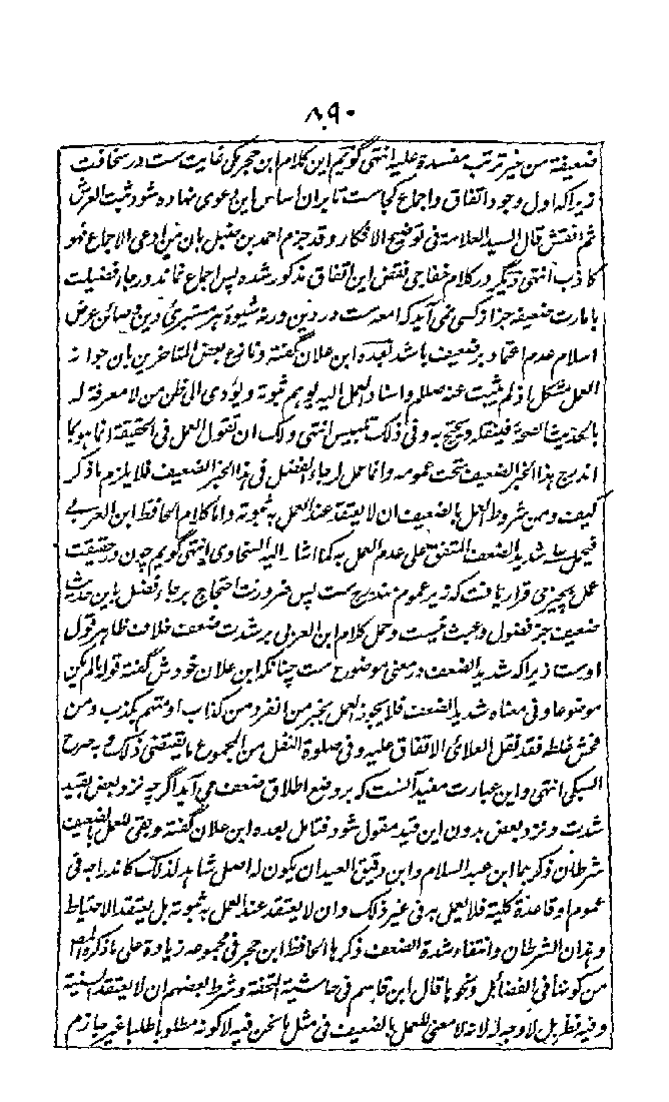 ۸۹۰
ضعیفة من غیر ترتب مفسدة علیه انتهی گویم این کلام ابن حجر مکی غایت ست در سخافت
زیراکه اول وجود اتفاق و اجماع کجاست تا بران اساس این دعوی نهاده شود ثبت العرش
ثم انقش قال السید العلامة فی توضیح الافکار وقد جزم احمد بن حنبل بان من ادعی الاجماع فهو
کاذب انتهی دیگر در کلام خفاجی نقض این اتفاق مذکور شده پس اجماع نماند و رجاء فضیلت
بامارت ضعیفه جز از کسی نمی آید که امعه ست در دین ورنه شیوۀ هر مستبرئ دین و صائن عرض
اسلام عدم اعتماد بر ضعیف باشد بعده ابن علان گفته ونازع بعض المتاخرین بان جوازه
العمل مشکل اذ لم یثبت عنه صلعم واسناد العمل الیه یوهم ثبوته ویؤدی الی ظن من لا معرفة له
بالحدیث الصحة فینقله ویحتج به وفی ذلک تلبیس انتهی ولک ان تقول العمل فی الحقیقة انما هو بما
اندرج هذا الخبر الضعیف تحت عمومه وانما عمل لرجاء الفضل فی هذا الخبر الضعیف فلا یلزم ما ذکر
کیف ومن شروط العمل بالضعیف ان لا یعتقد عند العمل به ثبوته واما کلام الحافظ ابن العربے
فیحمل علے شدید الضعف المتفق علی عدم العمل به کما اشار الیه السخاوی انتهی گویم چون در حقیقت
عمل بچیزی قرار یافت که زیر عموم مندرج ست پس ضرورت احتجاج برجاء فضل باین حدیث
ضعیف جز فضول و عبث نیست و حمل کلام ابن العربی بر شدت ضعف خلاف ظاهر قول
اوست زیراکه شدید الضعف در معنی موضوع ست چنانکه ابن علان خودش گفته قوله ما لم یکن
موضوعا وفی معناه شدید الضعف فلا یجوز العمل بخبر من انفرد من کذاب او متهم بکذب ومن
فحش غلطه فقد نقل العلائی الاتفاق علیه وفی صلوة النفل من المجموع ما یقتضی ذلک وبه صرح
السبکی انتهی و این عبارت مفید آنست که بر وضع اطلاق ضعف می آید اگرچه نزد بعض بقید
شدت و نزد بعض بدون این قید مقول شود فتامل بعده ابن علان گفته وبقی للعمل بالضعیف
شرطان ذکرهما ابن عبد السلام وابن دقیق العید ان یکون له اصل شاهد لذلک کاندراجه فی
عموم او قاعدة کلیة فلا یعمل به فی غیر ذلک وان لا یعتقد عند العمل به ثبوته بل یعتقد الاحتیاط
وهذان الشرطان وانتفاء شدة الضعف ذکرها الحافظ ابن حجر فی مجموعه زیادة علی ما ذکره المص
من کونها فی الفضائل ونحوها قال ابن قاسم فی حاشیة التحفة وشرط بعضهم ان لا یعتقد السنیة
وفیه نظر بل لا وجه له لانه لا معنی للعمل بالضعیف فی مثل ما نحن فیه الا کونه مطلوبا طلبا غیر جازم